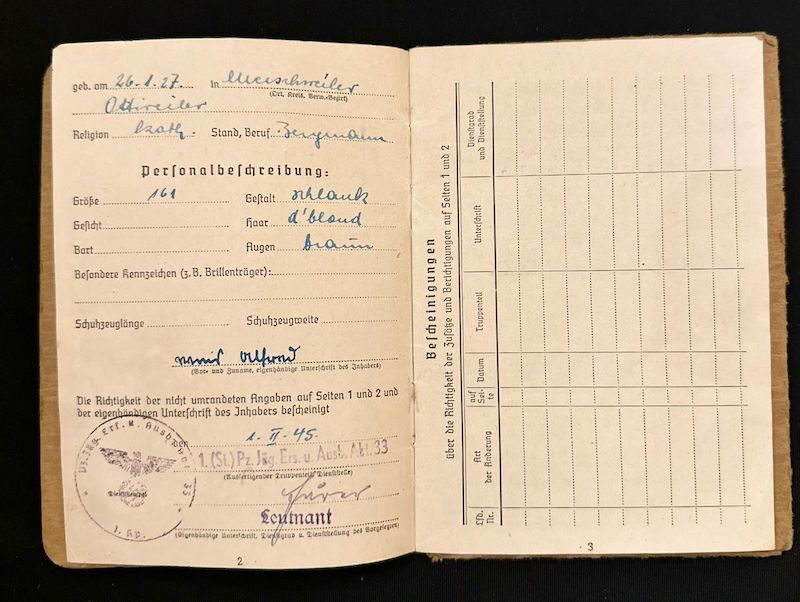 geb. am 26.1.27. in Merschweiler
(Ort, Kreis, Verw.-Bezirk)
Ottweiler
Religion kath. Stand, Beruf Bergmann
Personalbeschreibung:
Größe 161 Gestalt schlank
Gesicht Haar d'blond
Bart Augen braun
Besondere Kennzeichen (z.B. Brillenträger):
Schuhzeuglänge Schuhzeugweite
Alfred
(Vor- und Zuname, eigenhändige Unterschrift des Inhabers)
Die Richtigkeit der nicht umrandeten Angaben auf Seiten 1 und 2 und
der eigenhändigen Unterschrift des Inhabers bescheinigt
1.II.45.
1. (St.) Pz. Jäg. Ers. u. Ausb. Abt. 33
(Ausfertigender Truppenteil, Dienststelle)
Leutnant
(Eigenhändige Unterschrift, Dienstgrad u. Dienststellung des Vorgesetzten)
Pz. Jäg. Ers. u. Ausb. Abt. 33
Dienstsiegel
1. Kp.
2
Bescheinigungen
über die Richtigkeit der Zusätze und Berichtigungen auf Seiten 1 und 2
Lfd. Nr.
Art der Änderung
auf Seite
Datum
Truppenteil
Unterschrift
Dienstgrad und Dienststellung
3